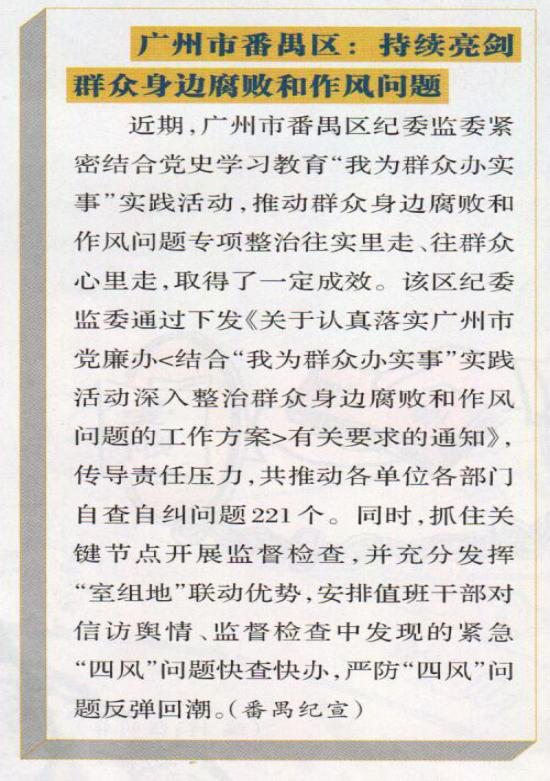 广州市番禺区：持续亮剑
群众身边腐败和作风问题
近期，广州市番禺区纪委监委紧
密结合党史学习教育“我为群众办实
事”实践活动，推动群众身边腐败和
作风问题专项整治往实里走、往群众
心里走，取得了一定成效。该区纪委
监委通过下发《关于认真落实广州市
党廉办<结合“我为群众办实事”实践
活动深入整治群众身边腐败和作风
问题的工作方案>有关要求的通知》，
传导责任压力，共推动各单位各部门
自查自纠问题221个。同时，抓住关
键节点开展监督检查，并充分发挥
“室组地”联动优势，安排值班干部对
信访舆情、监督检查中发现的紧急
“四风”问题快查快办，严防“四风”问
题反弹回潮。（番禺纪宣）